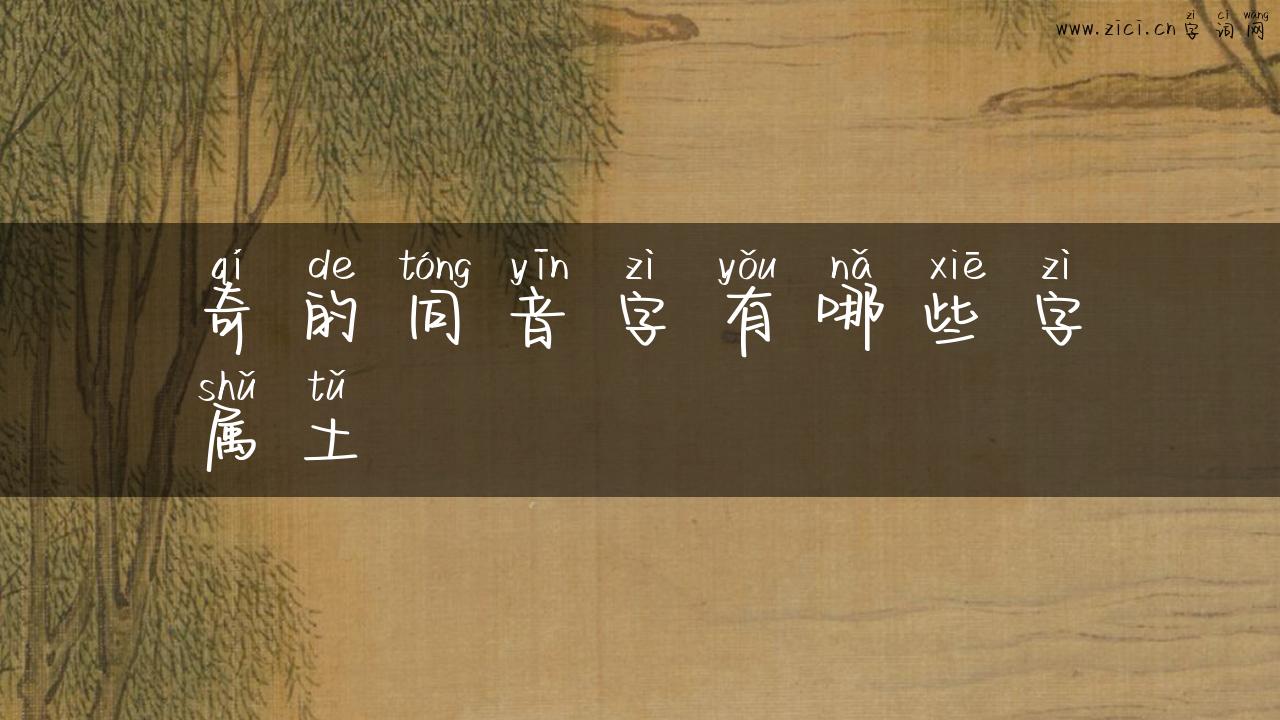 zì cí wǎng
www.zici.cn字词网
qí de tóng yīn zì yǒu nǎ xiē zì
奇的同音字有哪些字
shǔ tǔ
属土